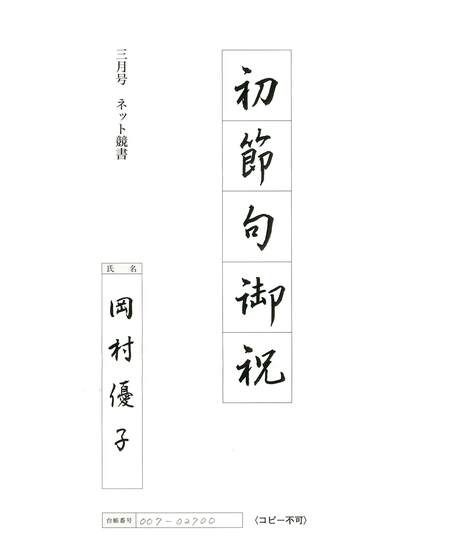 初節句御祝
三月号 ネット競書
氏 名
岡村優子
台帳番号 007-02700
〈コピー不可〉